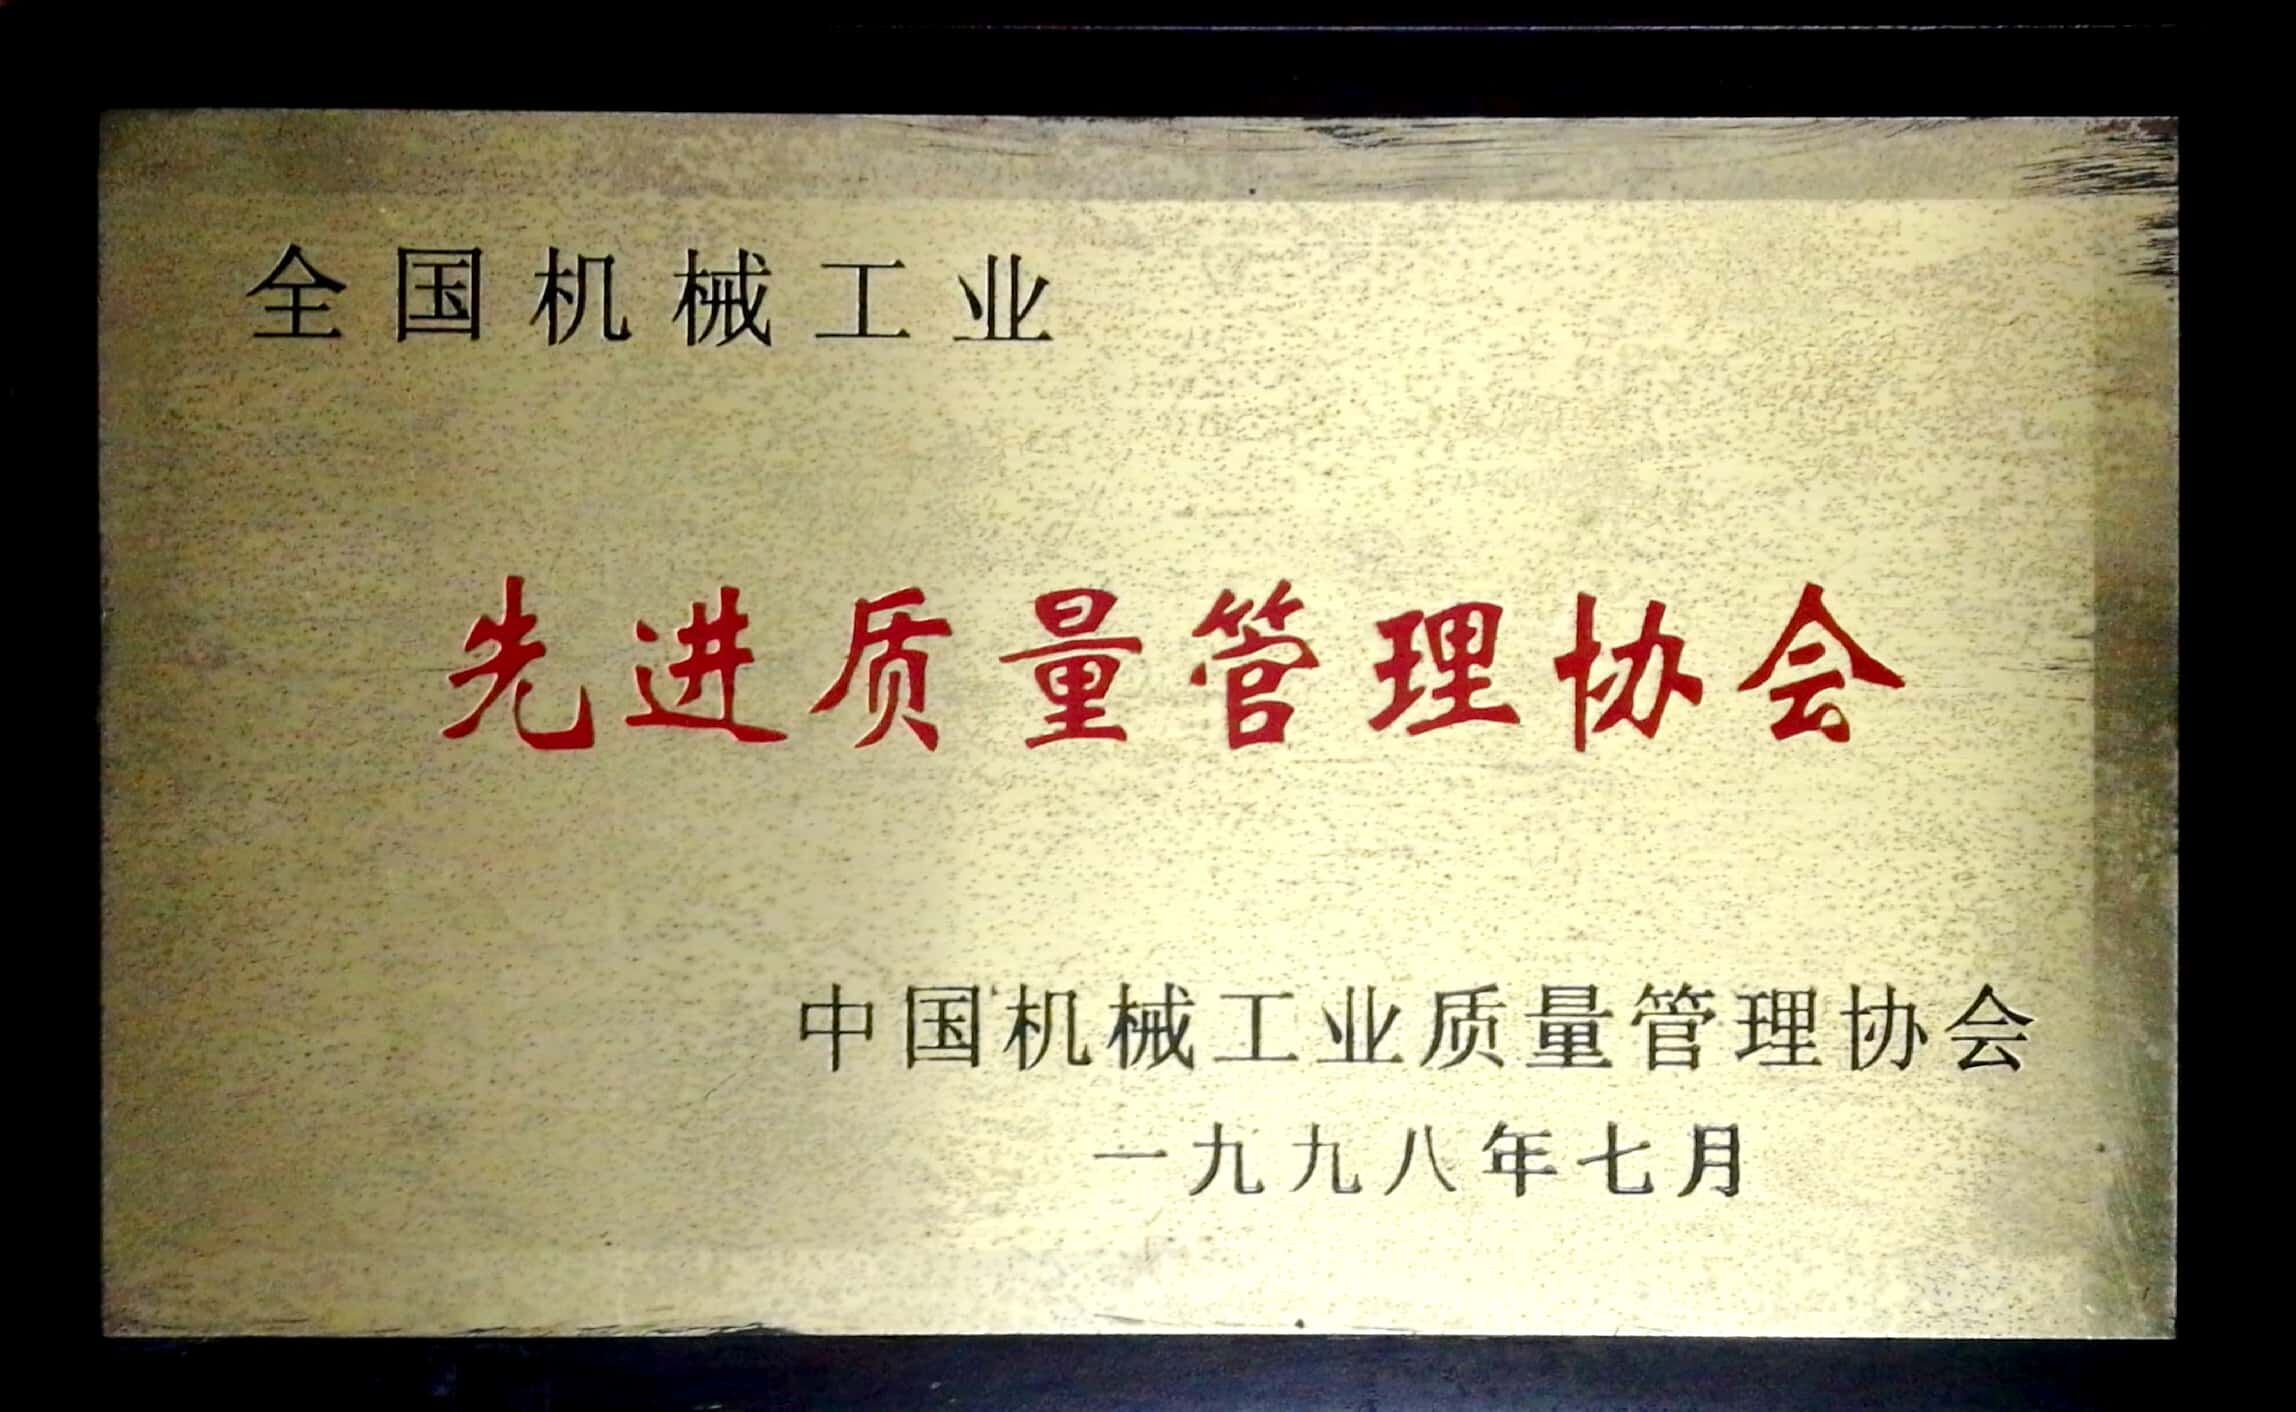 全国机械工业
先进质量管理协会
中国机械工业质量管理协会
一九九八年七月